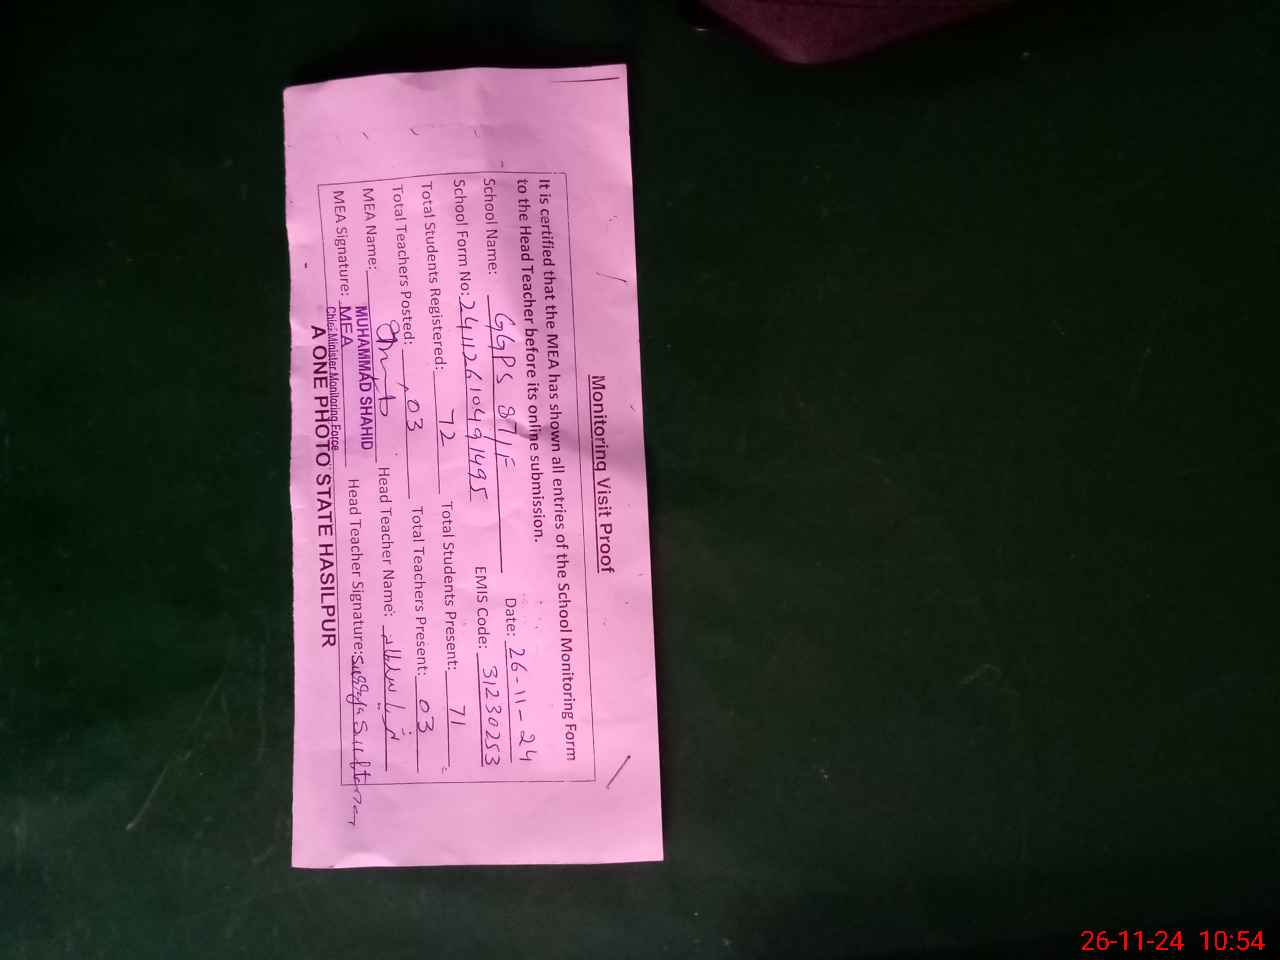 Monitoring Visit Proof
It is certified that the MEA has shown all entries of the School Monitoring Form
to the Head Teacher before its online submission.
Date: 26-11-24
School Name: GGPS 87/F
EMIS Code: 31230253
School Form No: 24112610491495
Total Students Registered: 72 Total Students Present: 71
Total Teachers Posted: 03 Total Teachers Present: 03
MEA Name: MUHAMMAD SHAHID Head Teacher Name:
MEA Signature: MEA Head Teacher Signature:
Chief Minister Monitoring Force
A ONE PHOTO STATE HASILPUR
26-11-24 10:54